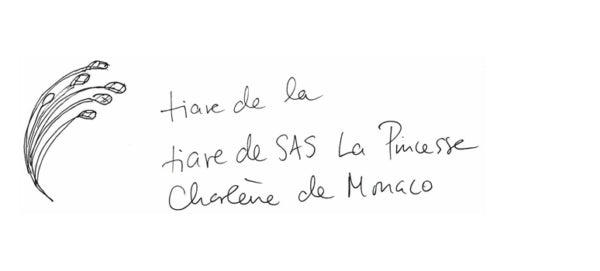 tiare de la
tiare de SAS La Pincesse
Charlène de Monaco